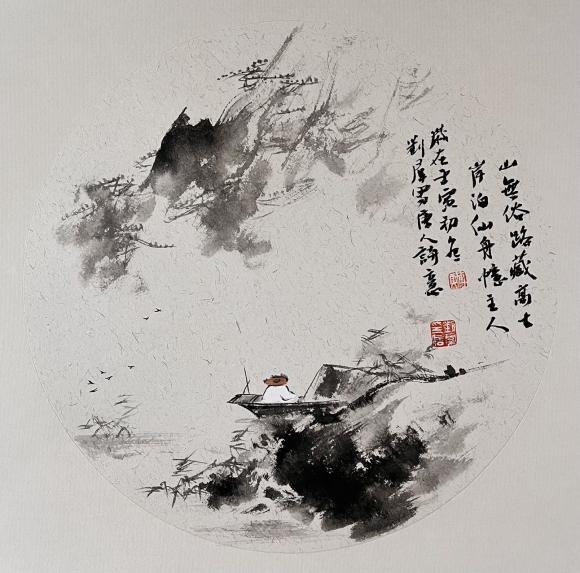 山無俗路藏高士
岸泊仙舟憶主人
歲在壬寅初冬
劉犀男唐人詩意